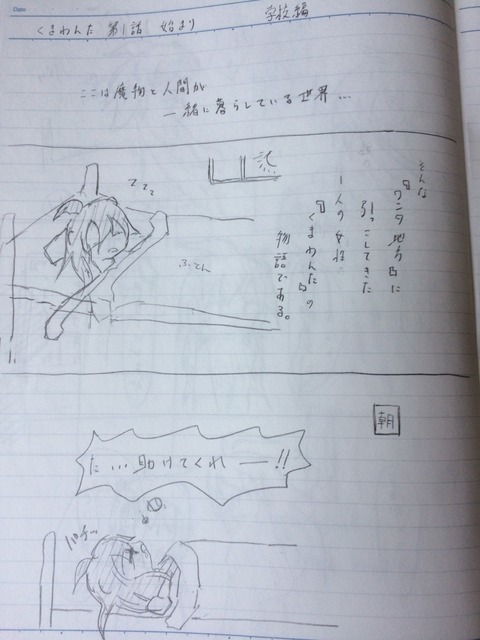 Date
学校編
くまわんた 第1話 始まり
ここは魔物と人間が
一緒に暮らしている世界…
そんな
『ワニの地方』に
引っこしてきた
1人の女性
『くまわんた』の
物語である。
zzz
ふとん
朝
た…助けてくれー!!
パチッ